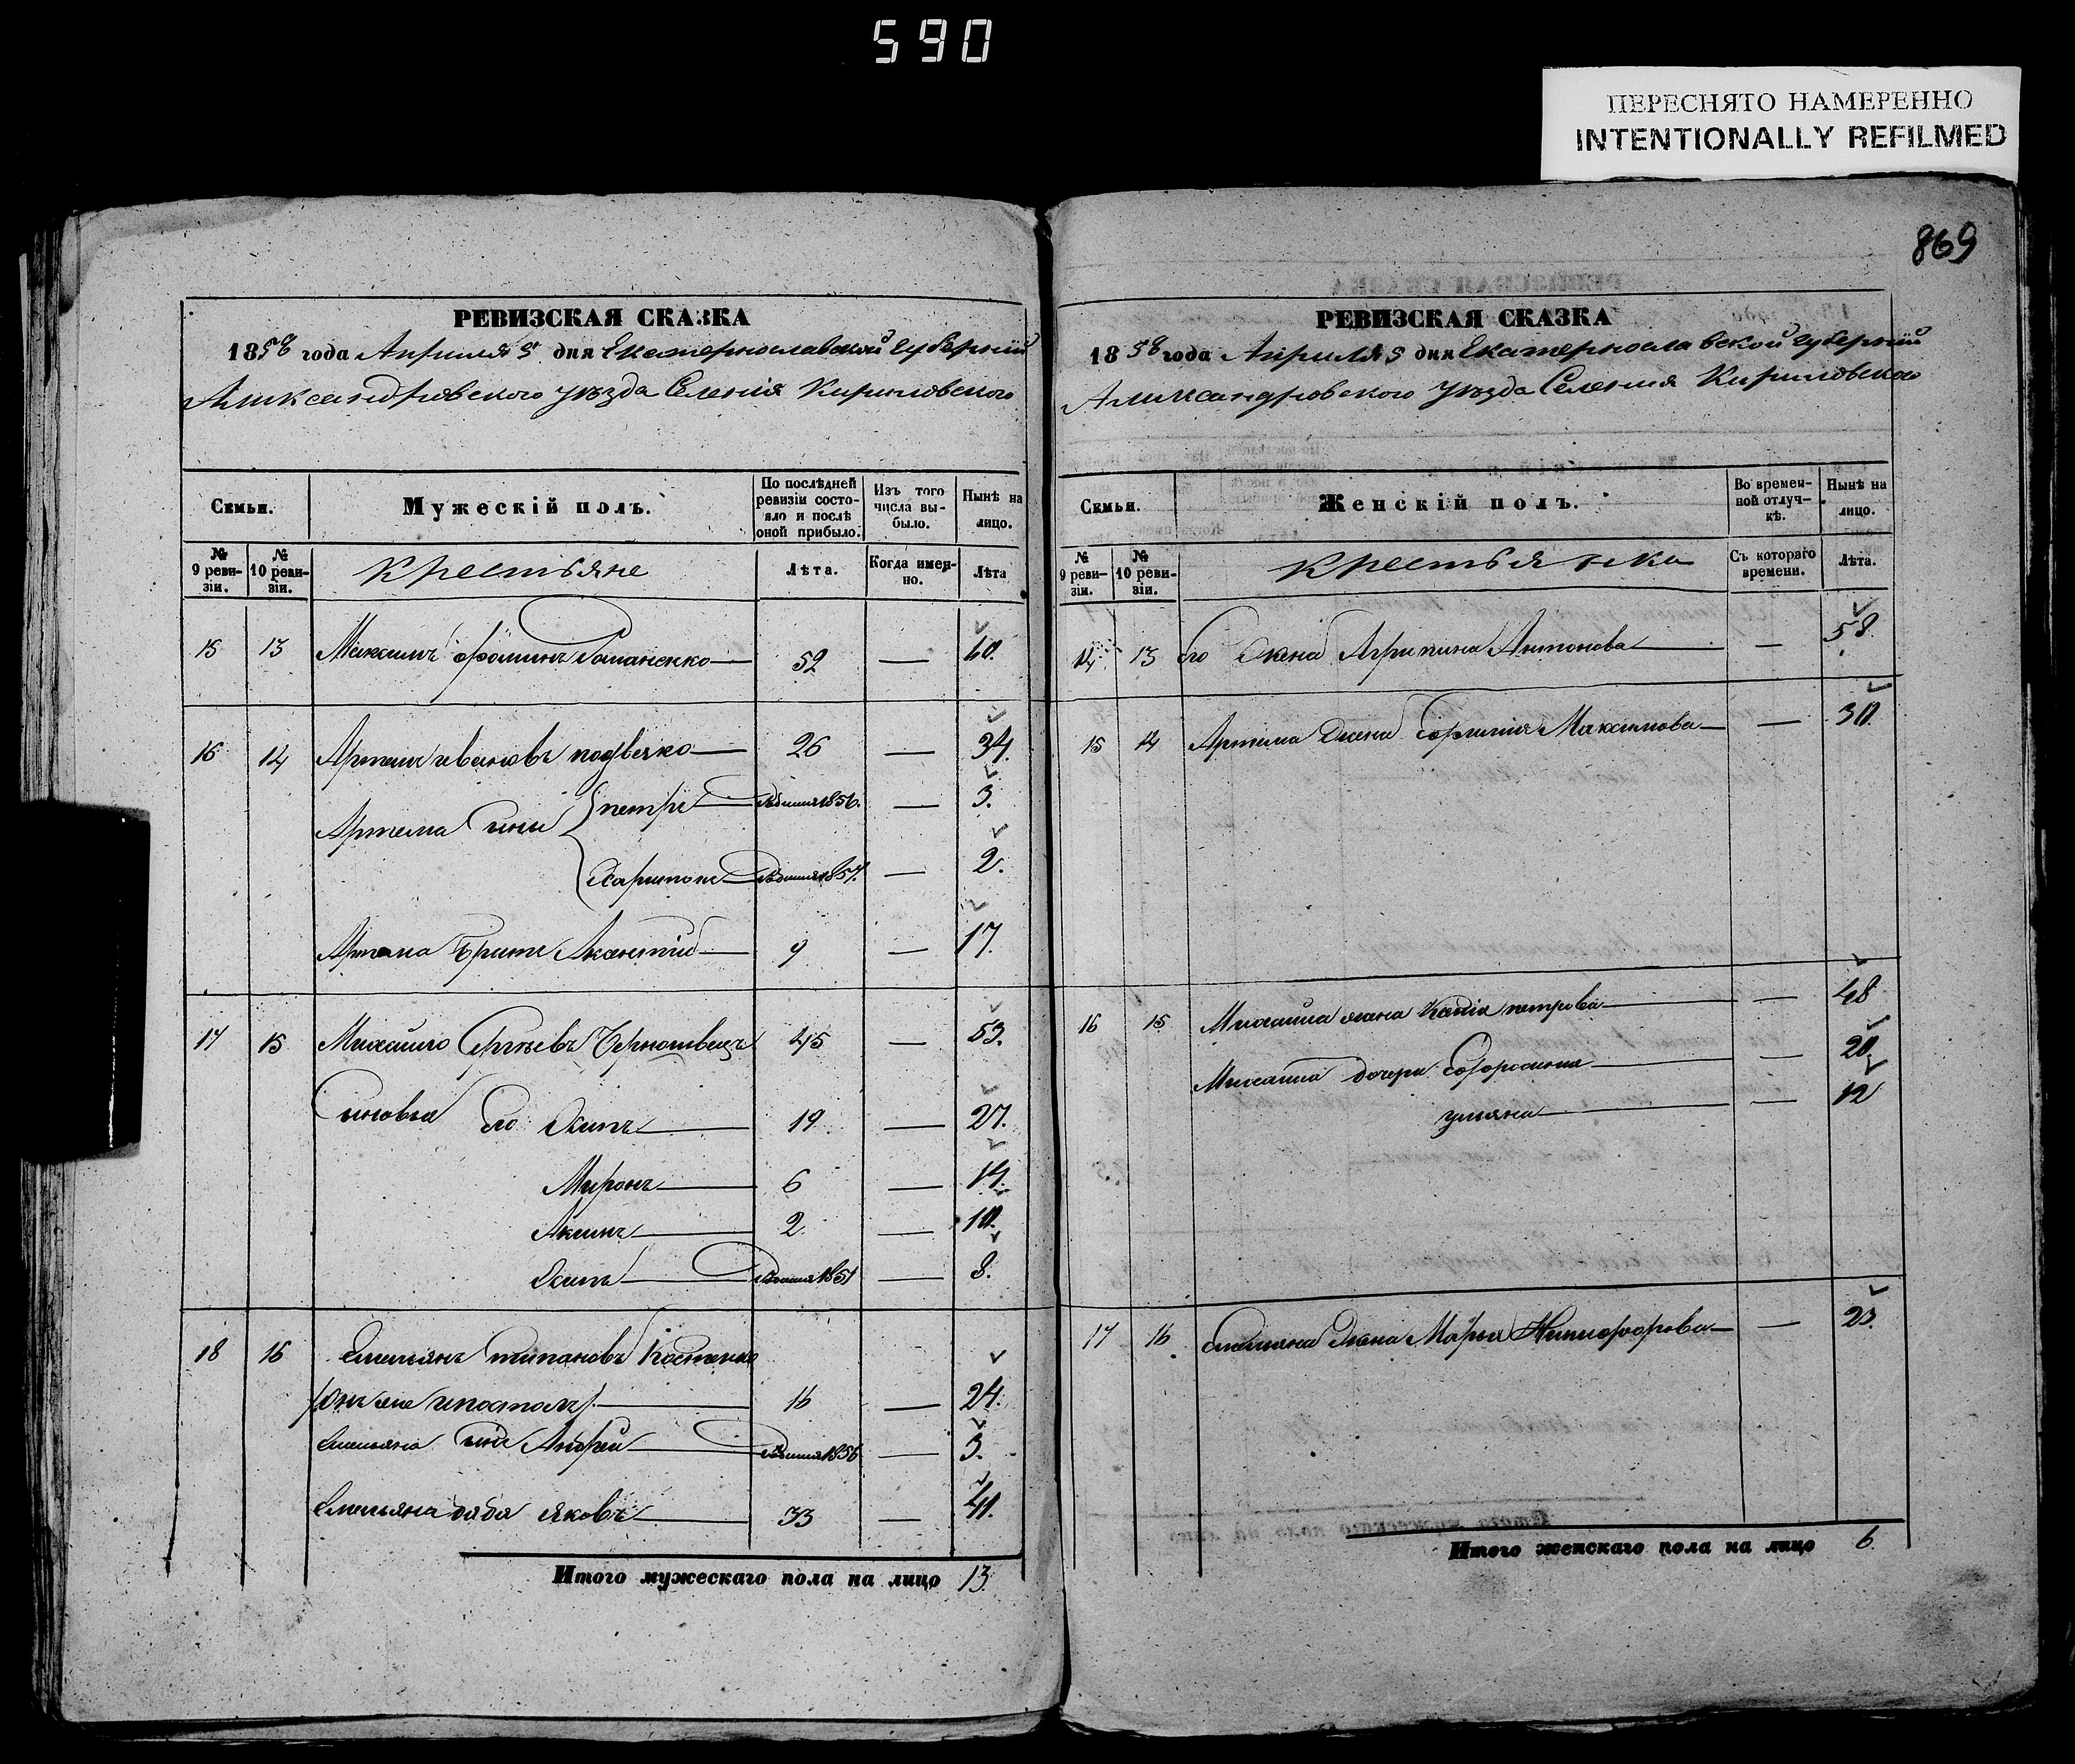 590
ПЕРЕСНЯТО НАМЕРЕННО
INTENTIONALLY REFILMED
869
РЕВИЗСКАЯ СКАЗКА
1858 года Апреля 5 дня Екатеринославской губернии
Александровского уѣзда Селенія Кириловского
Семьи.
Мужескій полъ.
По послѣдней ревизіи состояло и послѣ оной прибыло.
Изъ того числа выбыло.
Нынѣ на лицо.
№ 9 ревизіи.
№ 10 ревизіи.
Крестьяне
Лѣта.
Когда именно.
Лѣта
15 13 Максимъ Фоминъ Романенко 52 — 60.
16 14 Артемъ Ивановъ 26 — 34.
Артема сыни Петръ родился 1856. — 3.
Харитонъ родился 1857. — 2.
Артема братъ 9 — 17.
17 15 Михайло Сергѣевъ 45 — 53.
Сыновья его Осипъ 19 — 27.
Миронъ 6 — 14.
Акимъ 2 — 10.
Осипъ родился 1851 — 8.
18 16 Емельянъ Костенко
онъ же Апостолъ 16 — 24.
Емельяна сынъ Андрей родился 1856 — 3.
Емельяна дядя Яковъ 33 — 41.
Итого мужескаго пола на лицо 13.
РЕВИЗСКАЯ СКАЗКА
1858 года Апреля 5 дня Екатеринославской губернии
Александровского уѣзда Селения Кириловского
Семьи.
Женскій полъ.
Во временной отлучкѣ.
Нынѣ на лицо.
№ 9 ревизіи.
№ 10 ревизіи.
Крестьянка
Съ котораго времени.
Лѣта.
14 13 его Жена Агрипина Антонова — 58.
15 14 Артема Жена Максимова — 30.
16 15 Михаила жена Петрова — 48
Михаила дочери — 20.
Ульяна — 12
17 16 Емельяна Жена Марья Никифорова — 23.
Итого женскаго пола на лицо 6.